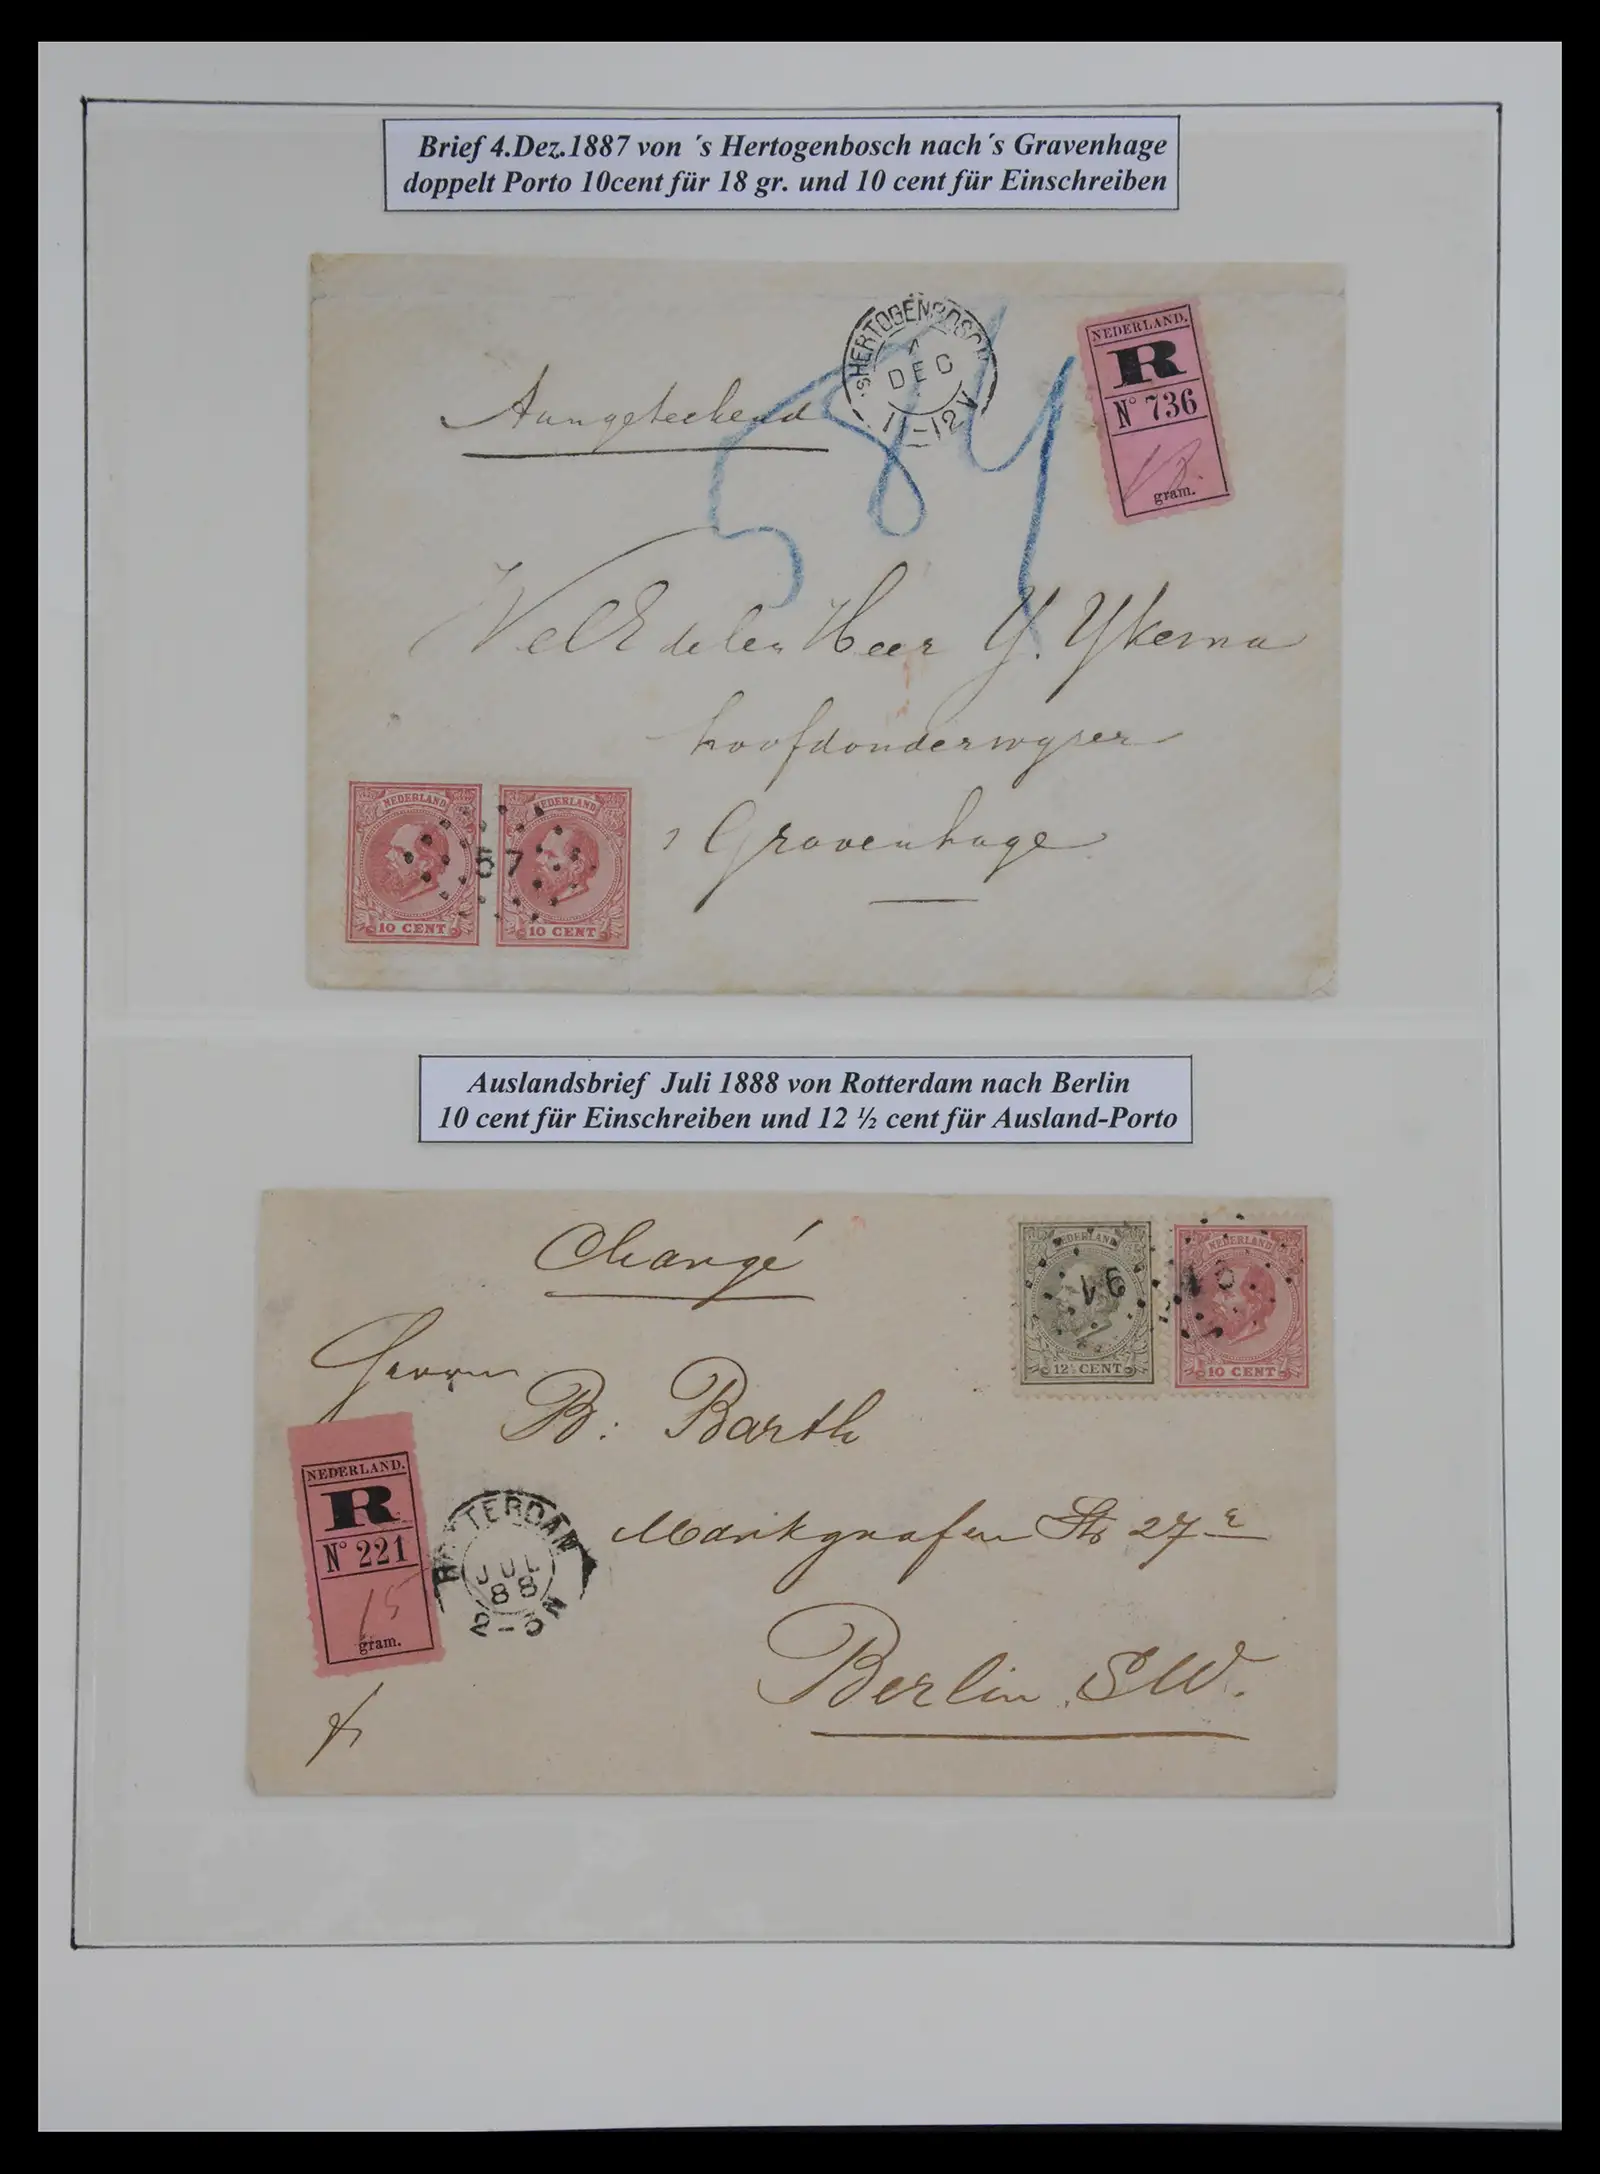 Brief 4.Dez.1887 von ´s Hertogenbosch nach´s Gravenhage
doppelt Porto 10cent für 18 gr. und 10 cent für Einschreiben
'sHERTOGENBOSCH
DEC
11-12V
NEDERLAND.
R
N° 736
18.
gram.
Aangeteekend
584
WelEdelen Heer Y. Ykema
hoofdonderwyzer
's Gravenhage
NEDERLAND
10 CENT
NEDERLAND
10 CENT
57
Auslandsbrief Juli 1888 von Rotterdam nach Berlin
10 cent für Einschreiben und 12 ½ cent für Ausland-Porto
Chargé
NEDERLAND
12½ CENT
91
NEDERLAND
10 CENT
91
Herrn
B: Barth
Markgrafen Str 27
Berlin. SW.
NEDERLAND.
R
N° 221
15
gram.
ROTTERDAM
JUL
88
2-3N